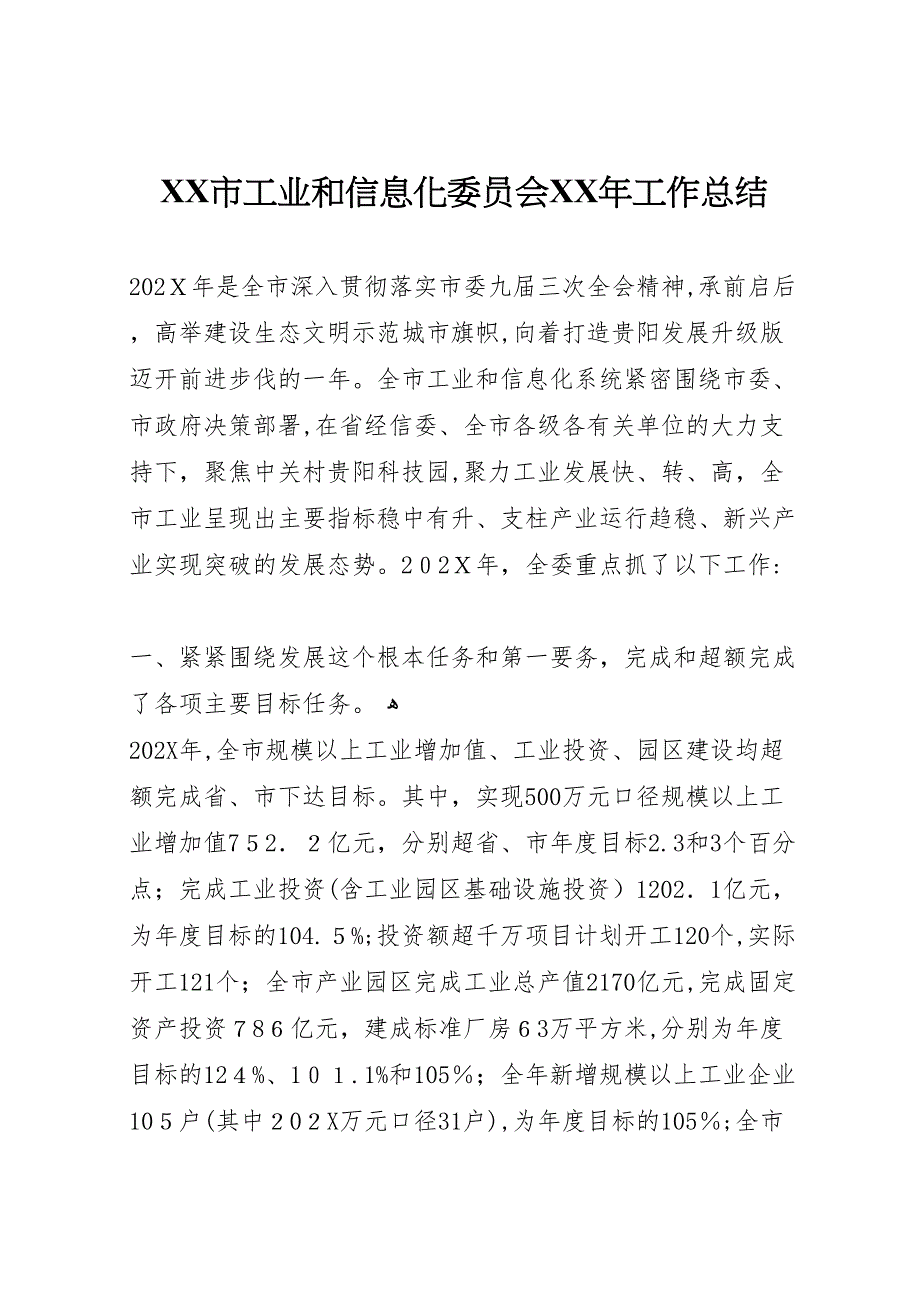 XX市工业和信息化委员会XX年工作总结
202X年是全市深入贯彻落实市委九届三次全会精神,承前启后
，高举建设生态文明示范城市旗帜,向着打造贵阳发展升级版
迈开前进步伐的一年。全市工业和信息化系统紧密围绕市委、
市政府决策部署,在省经信委、全市各级各有关单位的大力支
持下，聚焦中关村贵阳科技园,聚力工业发展快、转、高，全
市工业呈现出主要指标稳中有升、支柱产业运行趋稳、新兴产
业实现突破的发展态势。202X年，全委重点抓了以下工作:
一、紧紧围绕发展这个根本任务和第一要务，完成和超额完成
了各项主要目标任务。 ﻫ
202X年,全市规模以上工业增加值、工业投资、园区建设均超
额完成省、市下达目标。其中，实现500万元口径规模以上工
业增加值752．2亿元，分别超省、市年度目标2.3和3个百分
点；完成工业投资(含工业园区基础设施投资）1202．1亿元，
为年度目标的104.5%;投资额超千万项目计划开工120个,实际
开工121个；全市产业园区完成工业总产值2170亿元,完成固定
资产投资786亿元，建成标准厂房63万平方米,分别为年度
目标的124%、101.1%和105％；全年新增规模以上工业企业
105户(其中202X万元口径31户),为年度目标的105％;全市